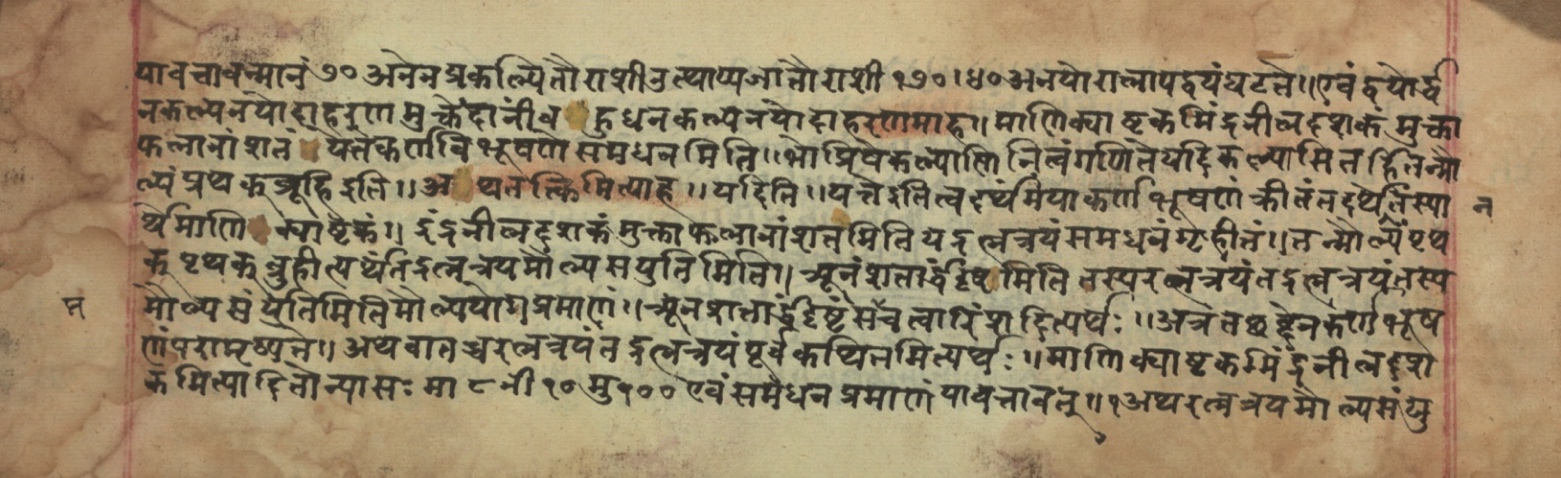 यावत्तावन्मानं ७० अनेन प्रकल्पितौ राशी उत्थाप्य जातौ राशी १७०।४० अनयोरालापद्वयं घटते॥ एवं द्वयोर्द्ध
नकल्पनयोदाहरणमुक्त्वेदानीं ब हुधनकल्पनयोदाहरणमाह॥ माणिक्याष्टकमिंद्रनीलदशकं मुक्ता
फलानां शतं यत्ते कर्णविभूषणे समधनमिति॥ भो प्रिये कल्याणि नित्वं गणिते यदि कल्यासि तर्हि तन्मौ
ल्यं प्रथक् ब्रूहि इति॥ अ थ तत्किमित्याह॥ यदिति॥ यत्ते इति त्वदर्थं मया कर्णभूषणं क्रीतं तदर्थे तस्या
र्थे माणि क्याष्टकं॥ इंद्रनीलदशकं मुक्ताफलानां शतमिति यद्रत्नत्रयं समधनं गृहीतं॥ तन्मौल्यं पृथ
क् पृथक् ब्रुहीत्यर्थं तद्रत्नत्रयमौल्यसयुतिमिति॥ त्र्यूनं शतार्द्धं मिति तस्य रत्नत्रयं तद्रत्नत्रयं तस्य
मौल्यसंयुतिमिति मौल्ययोगप्रमाणं॥ त्र्यूनशतार्द्धं सप्तचत्वारिंशदित्यर्थः॥ अत्र तछब्देन कर्णभूष
णं परामृष्यते॥ अथवा तच्च रत्नत्रयं तद्रत्नत्रयं पूर्वकथितमित्यर्थः॥ माणिक्याष्टकमिंद्रनीलदश
कमित्यादितो न्यासः मा ८ नी १० मु १०० एवं समधनप्रमाणं यावत्तावत्॥ १ अथ रत्नत्रयमौल्यसंयु